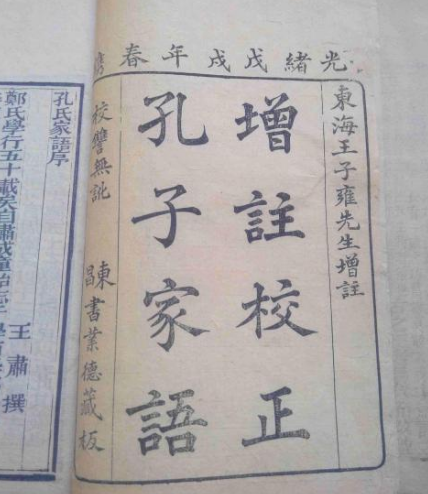 光緒戊戌年春鐫
東海王子雍先生增註
增註校正
孔子家語
校讐無訛 東昌書業德藏板
孔氏家語序
王肅撰
鄭氏學行五十載矣自肅成童始志